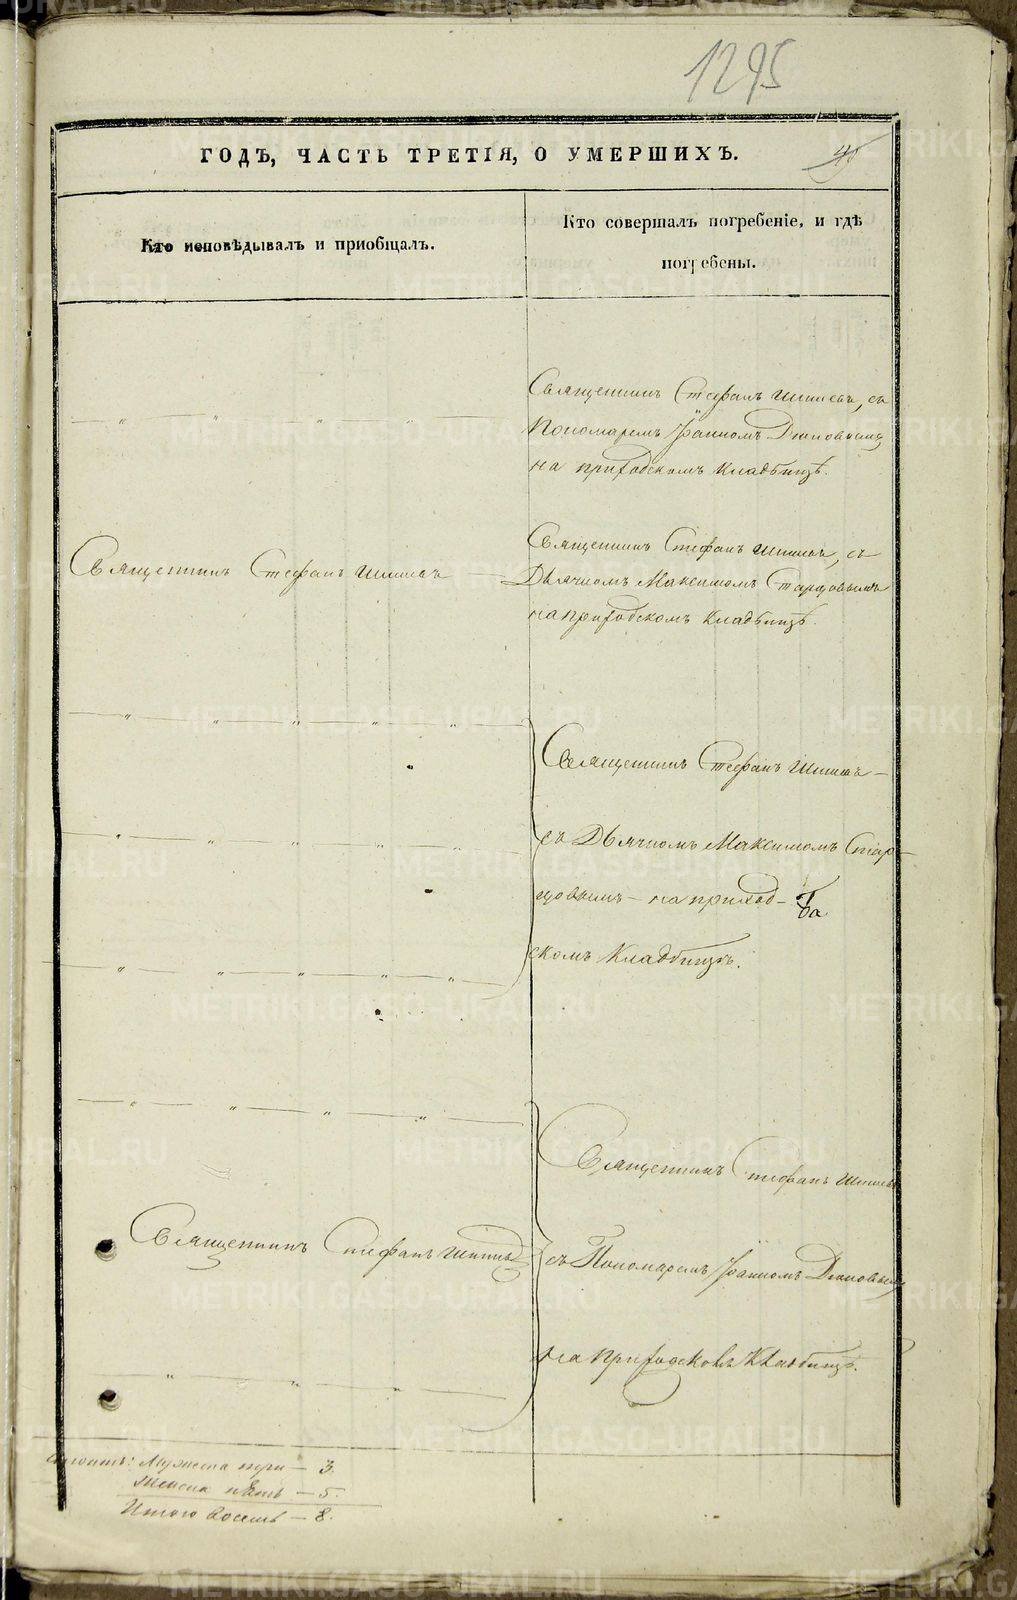 1295
ГОДЪ, ЧАСТЬ ТРЕТІЯ, О УМЕРШИХЪ.
Кто исповѣдывалъ и пріобщалъ.
Кто совершалъ погребеніе, и гдѣ
погребены.
Священникъ Стефанъ съ
Пономаремъ Іоанномъ
на приходскомъ Кладбищѣ.
Священникъ Стефанъ
Священникъ Стефанъ съ
Дьячкомъ Максимомъ Старцовымъ
на приходскомъ Кладбищѣ.
Священникъ Стефанъ
съ Дьячкомъ Максимомъ Стар-
цовымъ – на приход-
скомъ Кладбищѣ.
Священникъ Стефанъ
Священникъ Стефанъ
съ Пономаремъ Іоанномъ
на приходскомъ Кладбищѣ.
Мужеска три – 3.
Женска пять – 5.
Итого восемь – 8.
METRIKI.GASO-URAL.RU